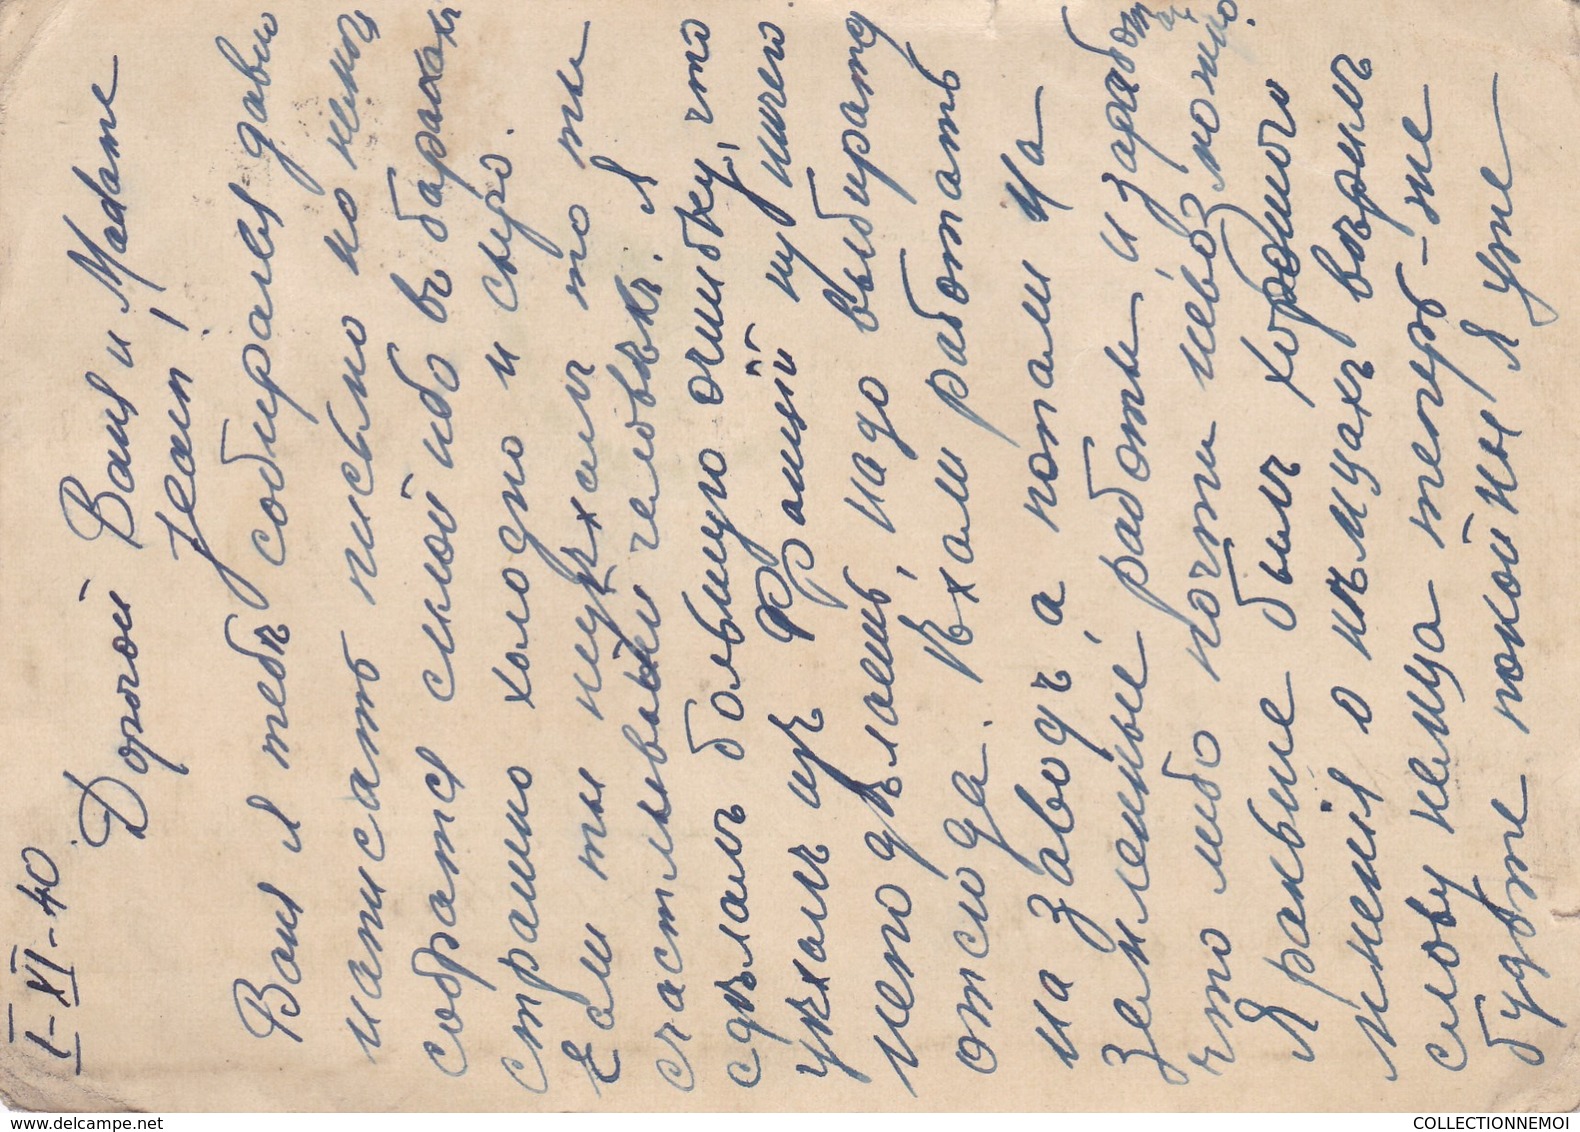 I-XI-40
Дорогой Ваня и Madame
Jean!
Ваня я тебѣ собирался давно
написать письмо но никак
собратся силой ибо въ баракахъ
страшно холодно и сыро.
Если ты неуѣхалъ то ты
счастливый человѣкъ. Я
сдѣлалъ большую ошибку, что
уѣхалъ изъ Франціи ну ничего
неподѣлаешь, надо выбирать
отсюда. Ѣхали работать
на заводъ, а попали на
земленные работы и заработать
что либо почти невозможно.
Я раньше былъ хорошого
мненія о нѣмцахъ вѣрилъ
слову немца теперь-же
будьте покойны я уже
www.delcampe.net
COLLECTIONNEMOI